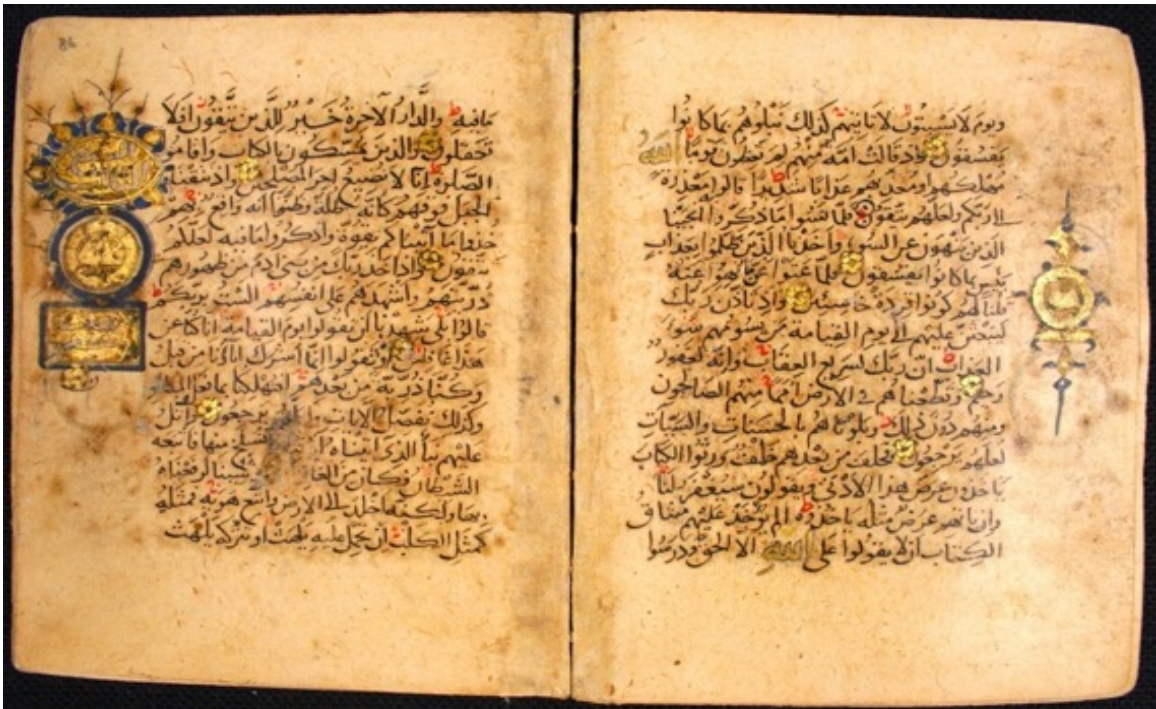 ويوم لا يسبتون لا تاتيهم كذلك نبلوهم بما كانوا
يفسقون واذ قالت امة منهم لم تعظون قوما الله
مهلكهم او معذبهم عذابا شديدا قالوا معذرة
الى ربكم ولعلهم يتقون فلما نسوا ما ذكروا به انجينا
الذين ينهون عن السوء واخذنا الذين ظلموا بعذاب
بئيس بما كانوا يفسقون فلما عتوا عن ما نهوا عنه
قلنا لهم كونوا قردة خاسئين واذ تاذن ربك
ليبعثن عليهم الى يوم القيامة من يسومهم سوء
العذاب ان ربك لسريع العقاب وانه لغفور
رحيم وقطعناهم في الارض امما منهم الصالحون
ومنهم دون ذلك وبلوناهم بالحسنات والسيئات
لعلهم يرجعون فخلف من بعدهم خلف ورثوا الكتاب
ياخذون عرض هذا الادنى ويقولون سيغفر لنا
وان ياتهم عرض مثله ياخذوه الم يؤخذ عليهم ميثاق
الكتاب ان لا يقولوا على الله الا الحق ودرسوا
ما فيه والدار الآخرة خير للذين يتقون افلا
تعقلون والذين يمسكون بالكتاب واقاموا
الصلوة انا لا نضيع اجر المصلحين واذ نتقنا
الجبل فوقهم كانه ظلة وظنوا انه واقع بهم
خذوا ما آتيناكم بقوة واذكروا ما فيه لعلكم
تتقون واذ اخذ ربك من بني ادم من ظهورهم
ذريتهم واشهدهم على انفسهم الست بربكم
قالوا بلى شهدنا ان تقولوا يوم القيامة انا كنا عن
هذا غافلين او تقولوا انما اشرك اباؤنا من قبل
وكنا ذرية من بعدهم افتهلكنا بما فعل المبطلون
وكذلك نفصل الايات ولعلهم يرجعون واتل
عليهم نبأ الذي اتيناه فانسلخ منها فاتبعه
الشيطان فكان من شئنا لرفعناه
بها ولكنه اخلد الى الارض واتبع هويه فمثله
كمثل الكلب ان تحمل عليه يلهث او تتركه يلهث
86